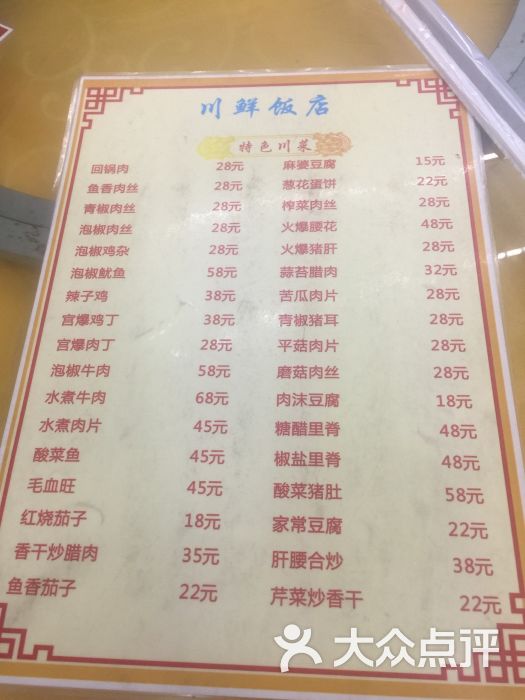 川鲜饭店
特色川菜
回锅肉 28元 麻婆豆腐 15元
鱼香肉丝 28元 葱花蛋饼 22元
青椒肉丝 28元 榨菜肉丝 28元
泡椒肉丝 28元 火爆腰花 48元
泡椒鸡杂 28元 火爆猪肝 28元
泡椒鱿鱼 58元 蒜苔腊肉 32元
辣子鸡 38元 苦瓜肉片 28元
宫爆鸡丁 38元 青椒猪耳 28元
宫爆肉丁 28元 平菇肉片 28元
泡椒牛肉 58元 磨菇肉丝 28元
水煮牛肉 68元 肉沫豆腐 18元
水煮肉片 45元 糖醋里脊 48元
酸菜鱼 45元 椒盐里脊 48元
毛血旺 45元 酸菜猪肚 58元
红烧茄子 18元 家常豆腐 22元
香干炒腊肉 35元 肝腰合炒 38元
鱼香茄子 22元 芹菜炒香干 22元
大众点评